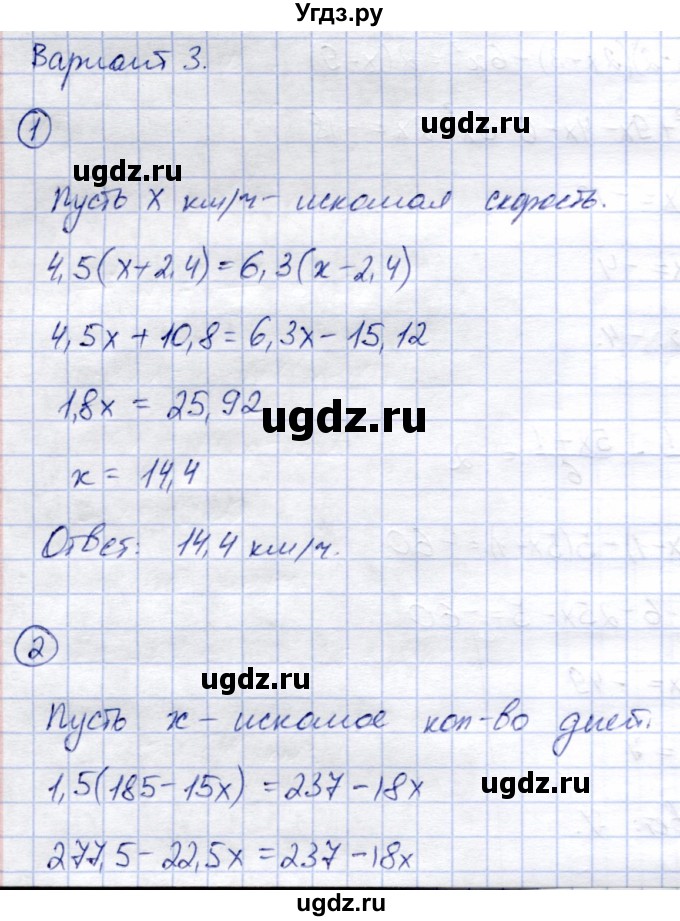 Угдз.ру
Вариант 3.
1
ugdz.ru
ugdz.ru
Пусть x км/ч - искомая скорость.
4,5(x+2,4)=6,3(x-2,4)
4,5x+10,8=6,3x-15,12
1,8x = 25,92
ugdz.ru
x = 14,4
Ответ: 14,4 км/ч.
2
ugdz.ru
Пусть x - искомое кол-во дней.
1,5(185-15x)=237-18x
ugdz.ru
277,5-22,5x=237-18x
ugdz.ru